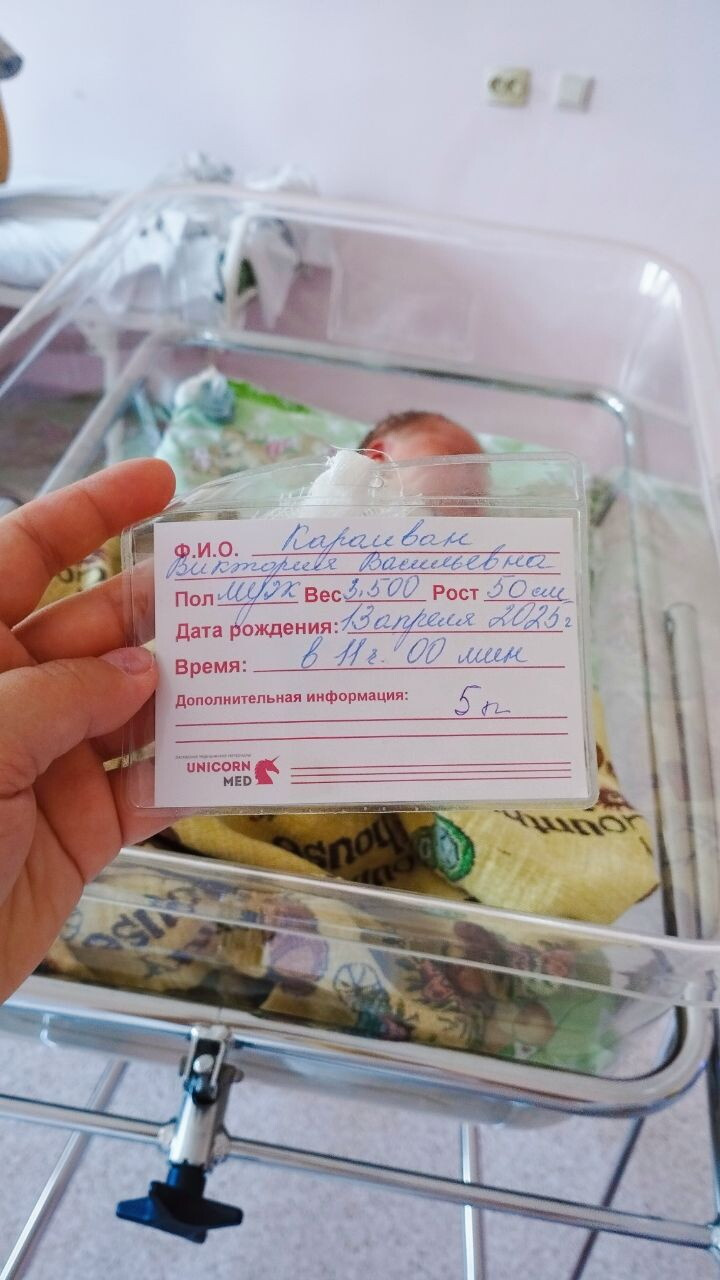 Ф.И.О. Караиван
Виктория Васильевна
Пол муж Вес 3.500 Рост 50 см
Дата рождения: 13 апреля 2025 г
Время: в 11 ч. 00 мин
Дополнительная информация: 5 п
UNICORN
MED
house
country